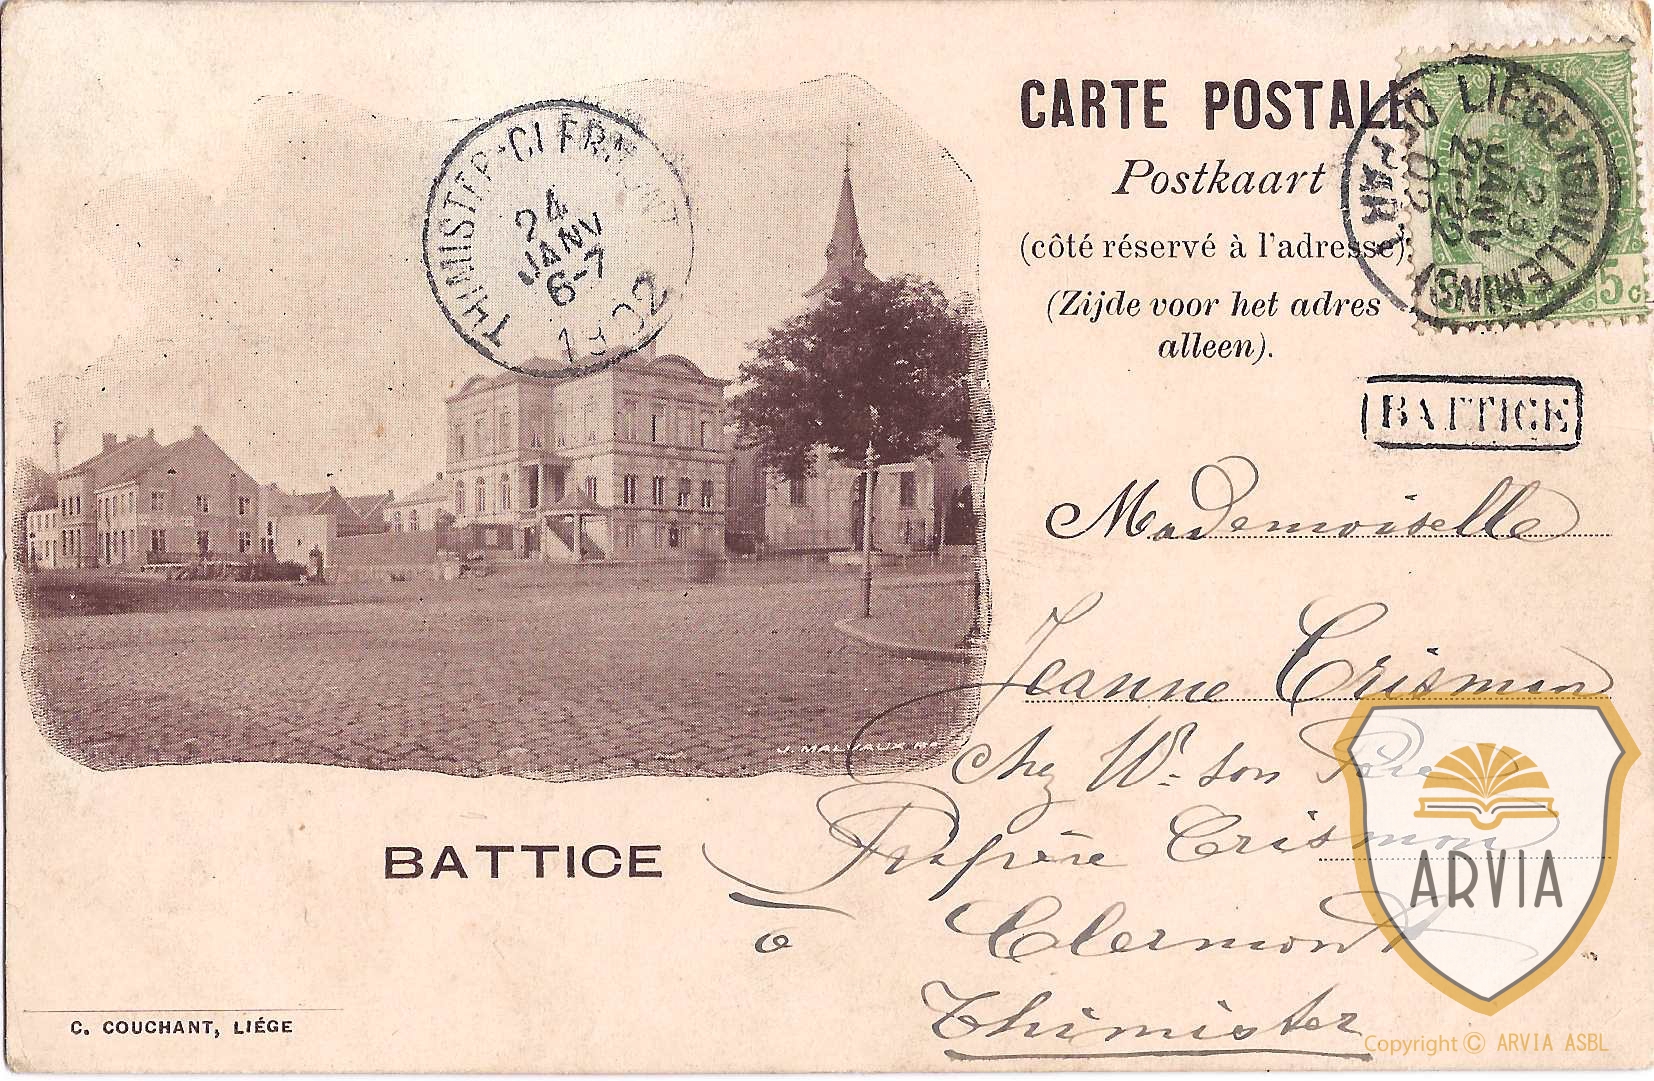 CARTE POSTALE
Postkaart
(côté réservé à l'adresse)
(Zijde voor het adres
alleen).
THIMISTER-CLERMONT
24
JANV
6-7
1902
LIEGE (GUILLEMINS)
23
JANV
DÉPART
5c
BATTICE
Mademoiselle
Jeanne Crismon
chez Mr son Père
Prspère Crismon
à Clermont
Thimister
J. MALVAUX
BATTICE
C. COUCHANT, LIÉGE
ARVIA
Copyright © ARVIA ASBL